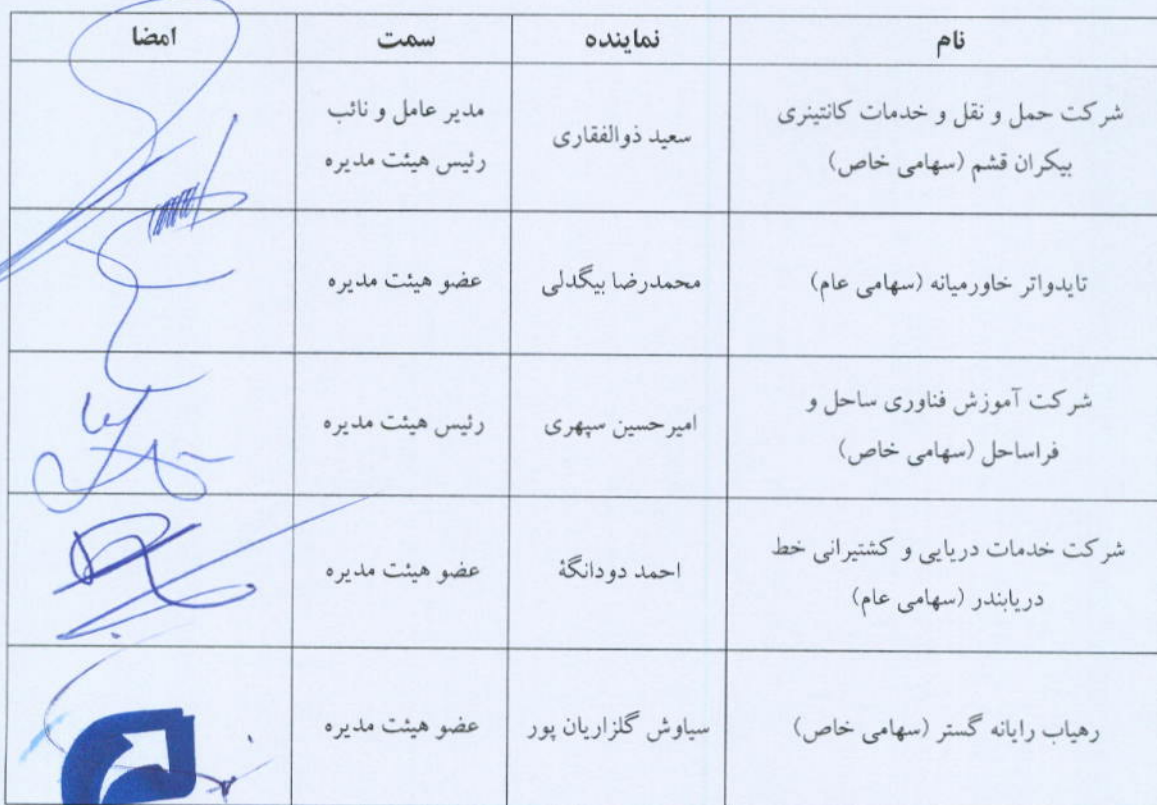 نام نماینده سمت امضا
شرکت حمل و نقل و خدمات کانتینری
بیکران قشم (سهامی خاص)
سعید ذوالفقاری
مدیر عامل و نائب
رئیس هیئت مدیره
تایدواتر خاورمیانه (سهامی عام)
محمدرضا بیگدلی
عضو هیئت مدیره
شرکت آموزش فناوری ساحل و
فراساحل (سهامی خاص)
امیرحسین سپهری
رئیس هیئت مدیره
شرکت خدمات دریایی و کشتیرانی خط
دریابندر (سهامی عام)
احمد دودانگۀ
عضو هیئت مدیره
رهیاب رایانه گستر (سهامی خاص)
سیاوش گلزاریان پور
عضو هیئت مدیره